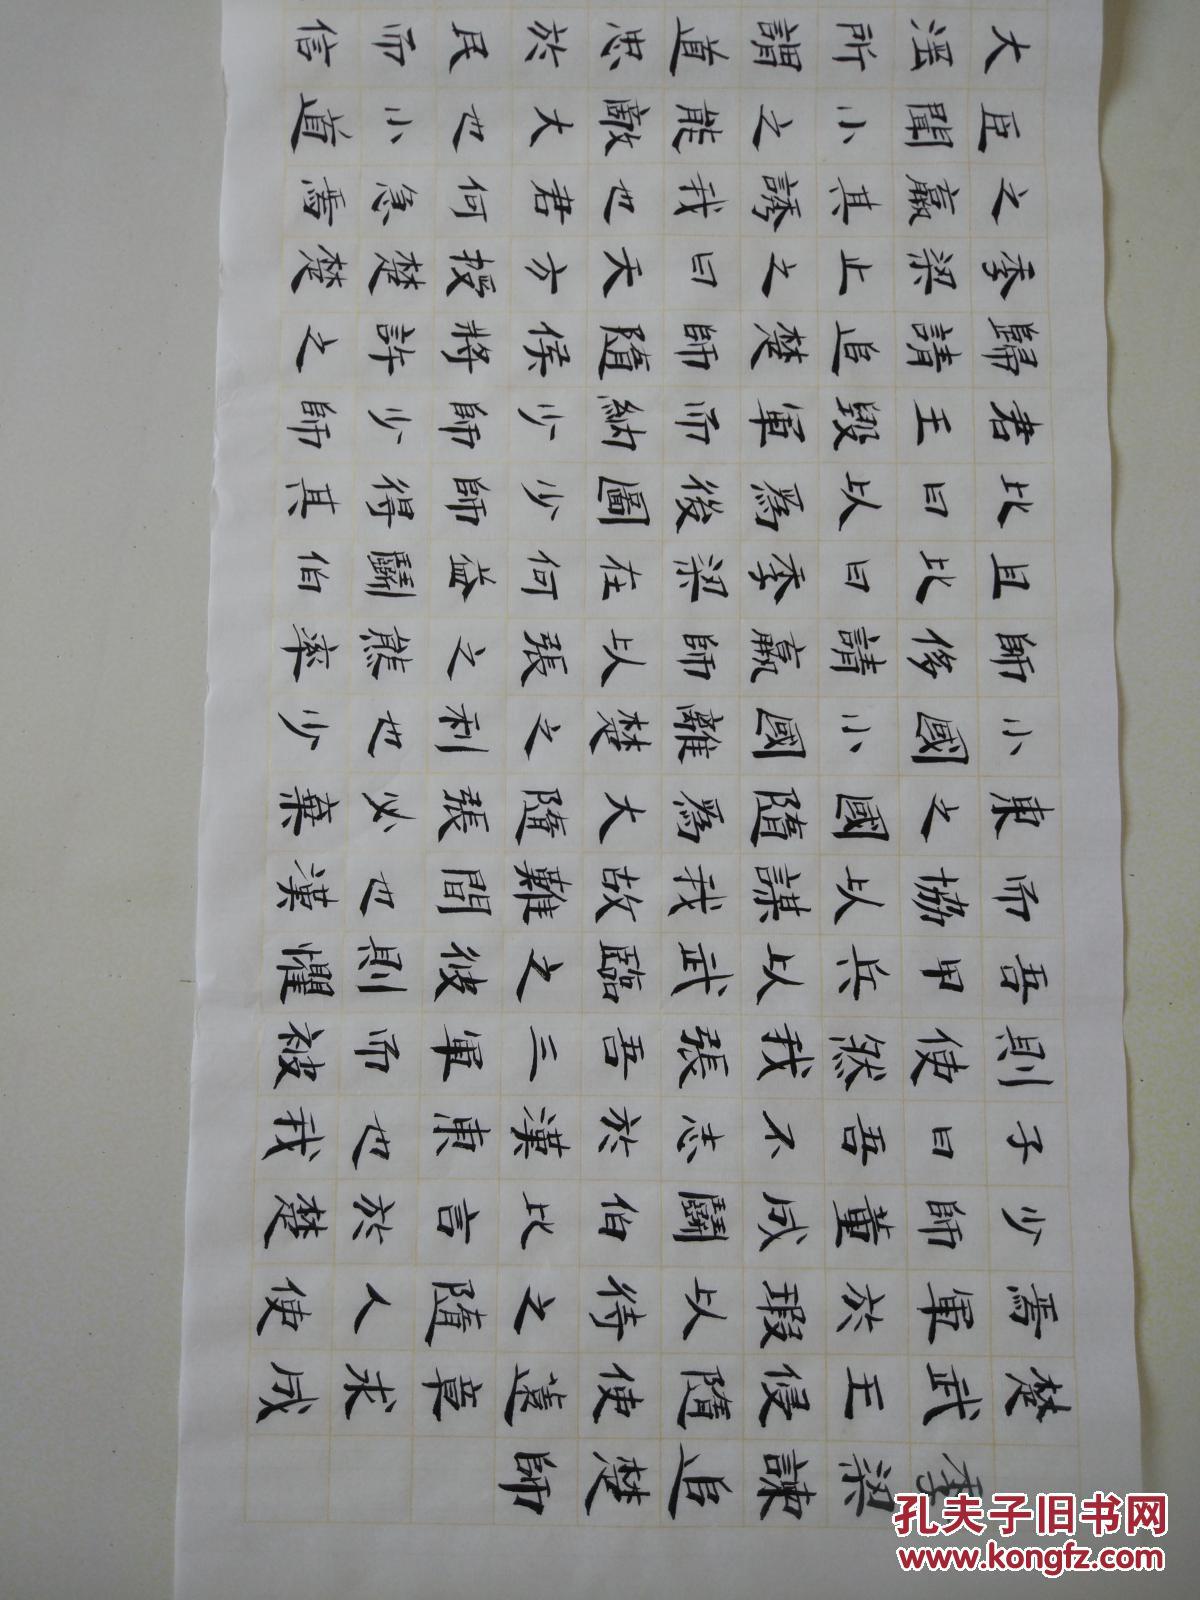 季梁諫追楚師
楚武王侵隨使薳章求成
焉軍於瑕以待之隨人使
少師董成鬭伯比言於楚
子曰吾不志於漢東也我
則使然我張吾三軍而被
吾甲兵以武臨之彼則懼
而協以謀我故難間也漢
東之國隨為大隨張必棄
小國小國離楚之利也少
師侈請羸師以張之熊率
且比曰季梁在何益鬭伯
比曰以為後圖少師得其
君王毀軍而納少師少師
歸請追楚師隨侯將許之
季梁止之曰天方授楚楚
之羸其誘我也君何急焉
臣聞小之能敵大也小道
大淫所謂道忠於民而信
孔夫子旧书网
www.kongfz.com